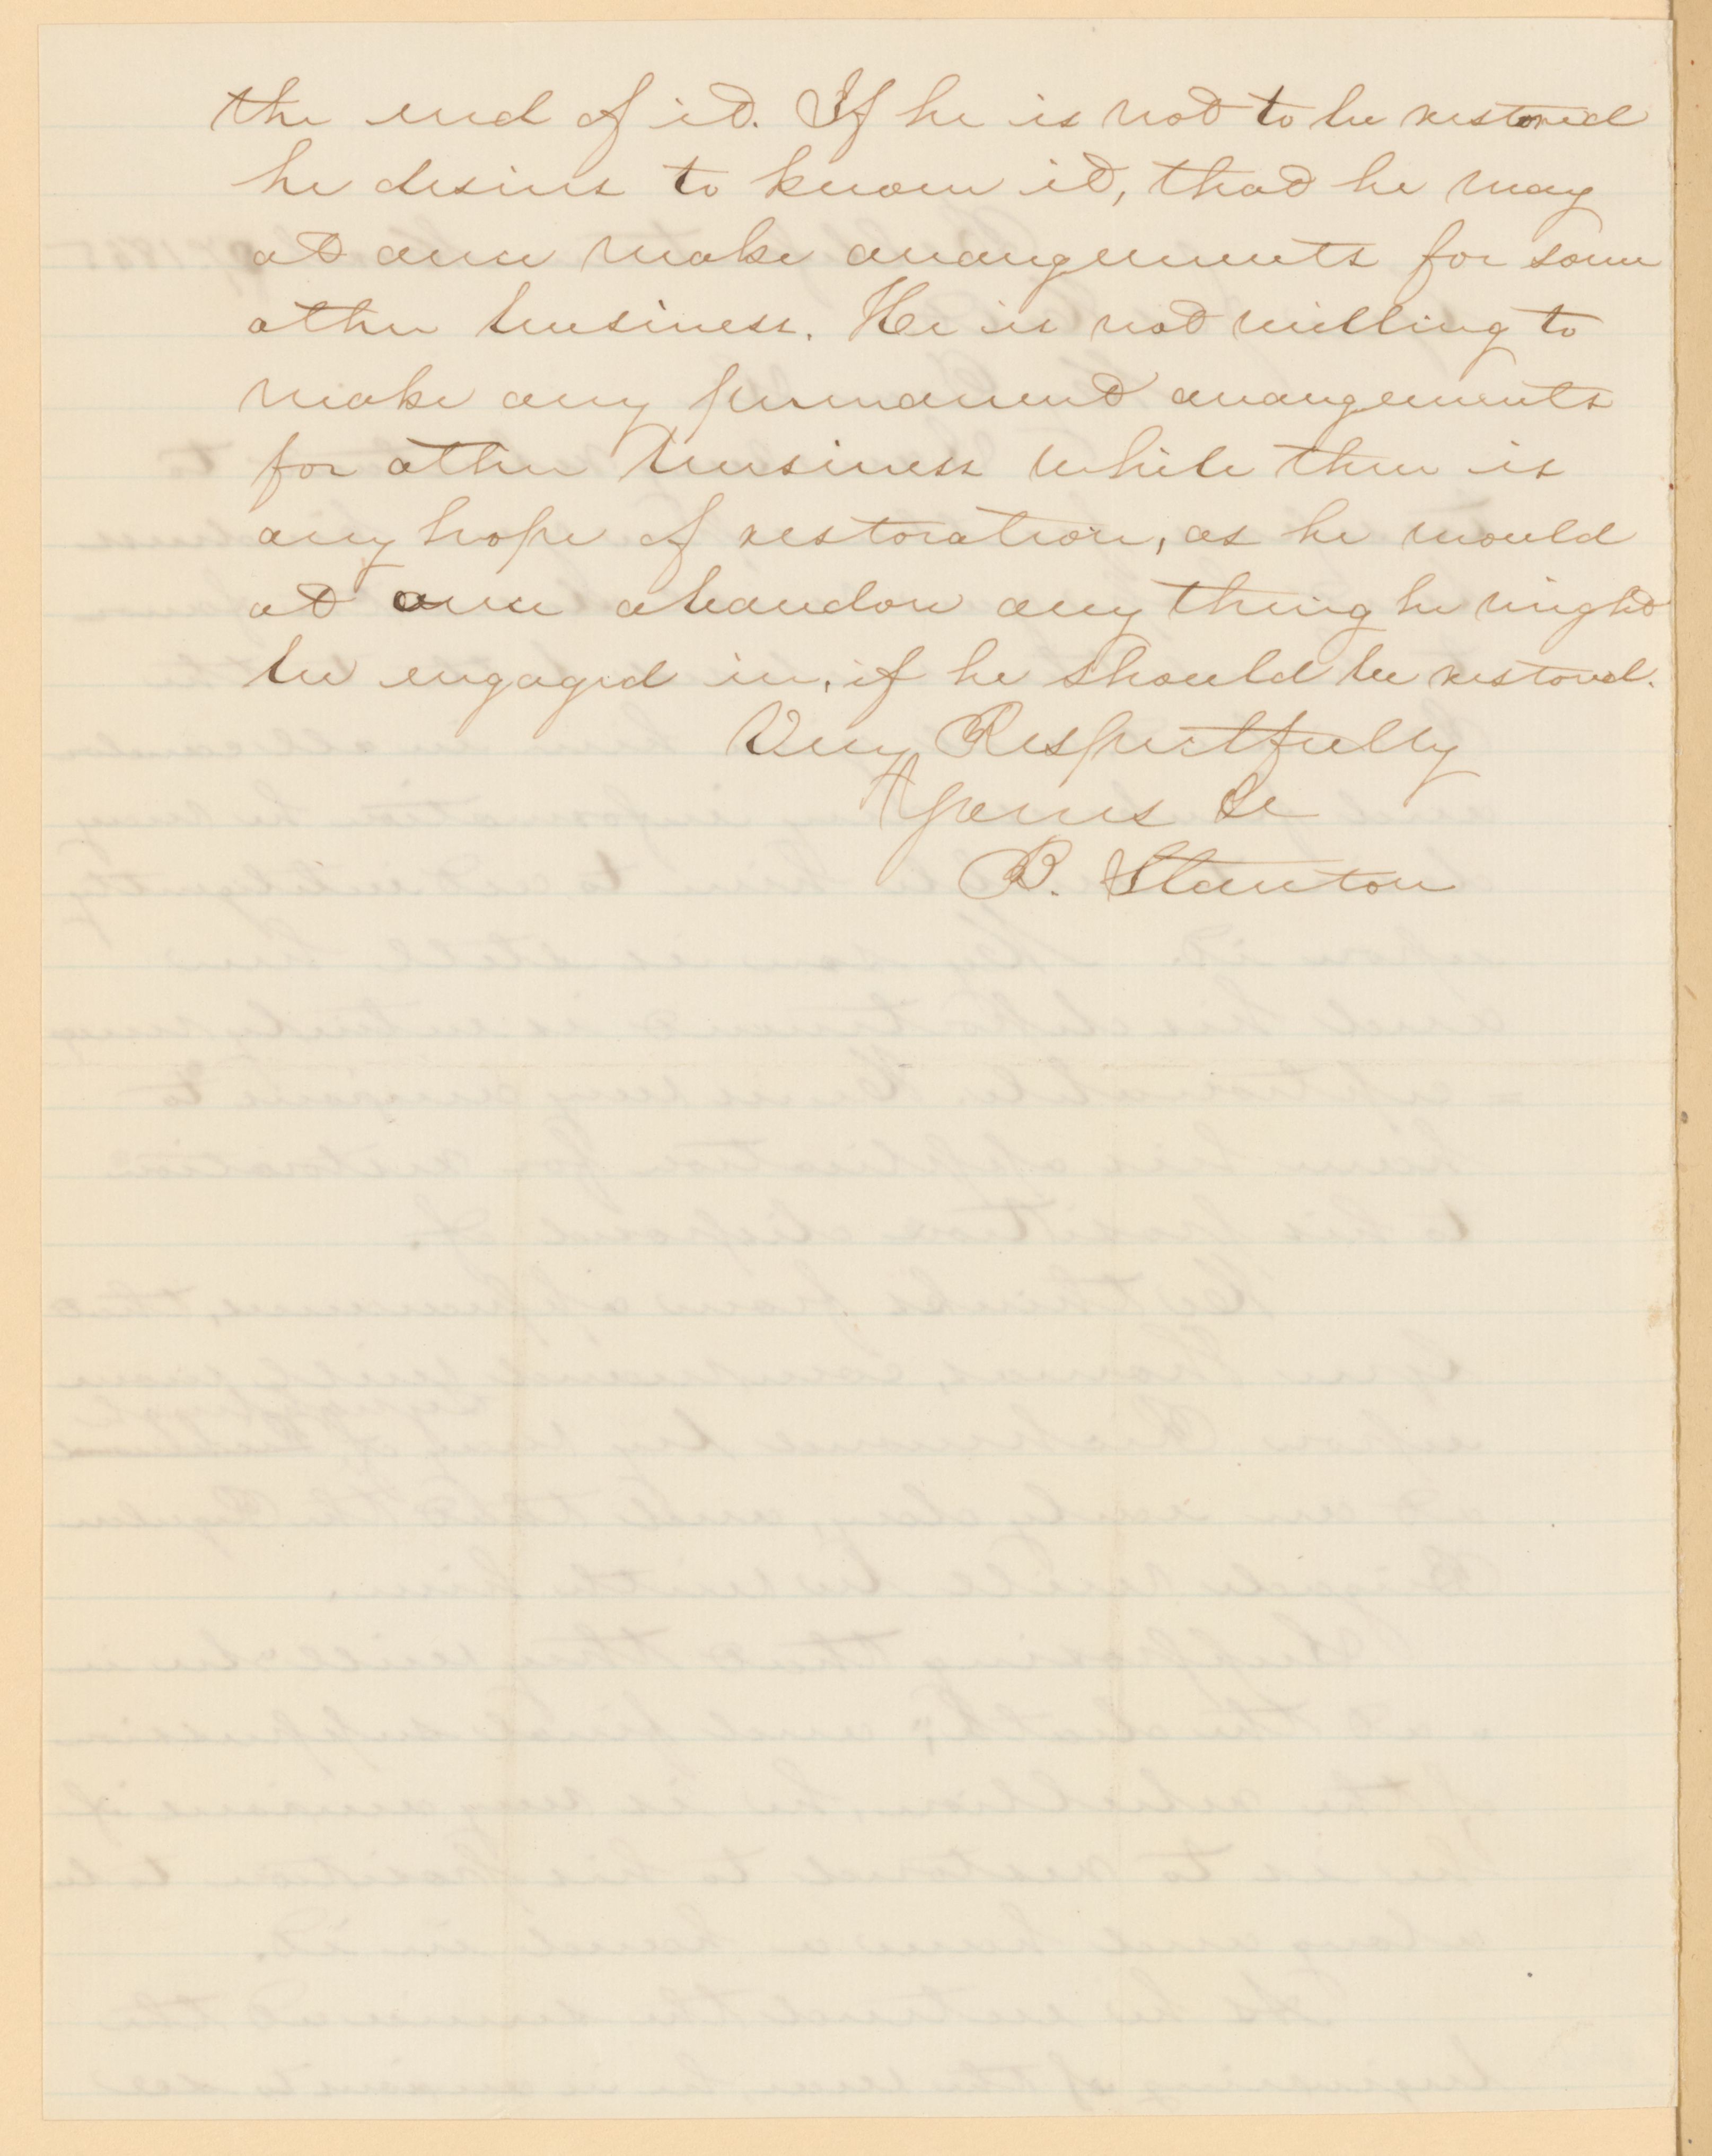 the end of it. If he is not to be restored
he desires to know it, that he may
at once make arrangements for some
other business. He is not willing to
make any permanent arrangements
for other business while there is
any hope of restoration, as he would
at once abandon any thing he might
be engaged in, if he should be restored.
Very Respectfully
Yours &c
B. Stanton